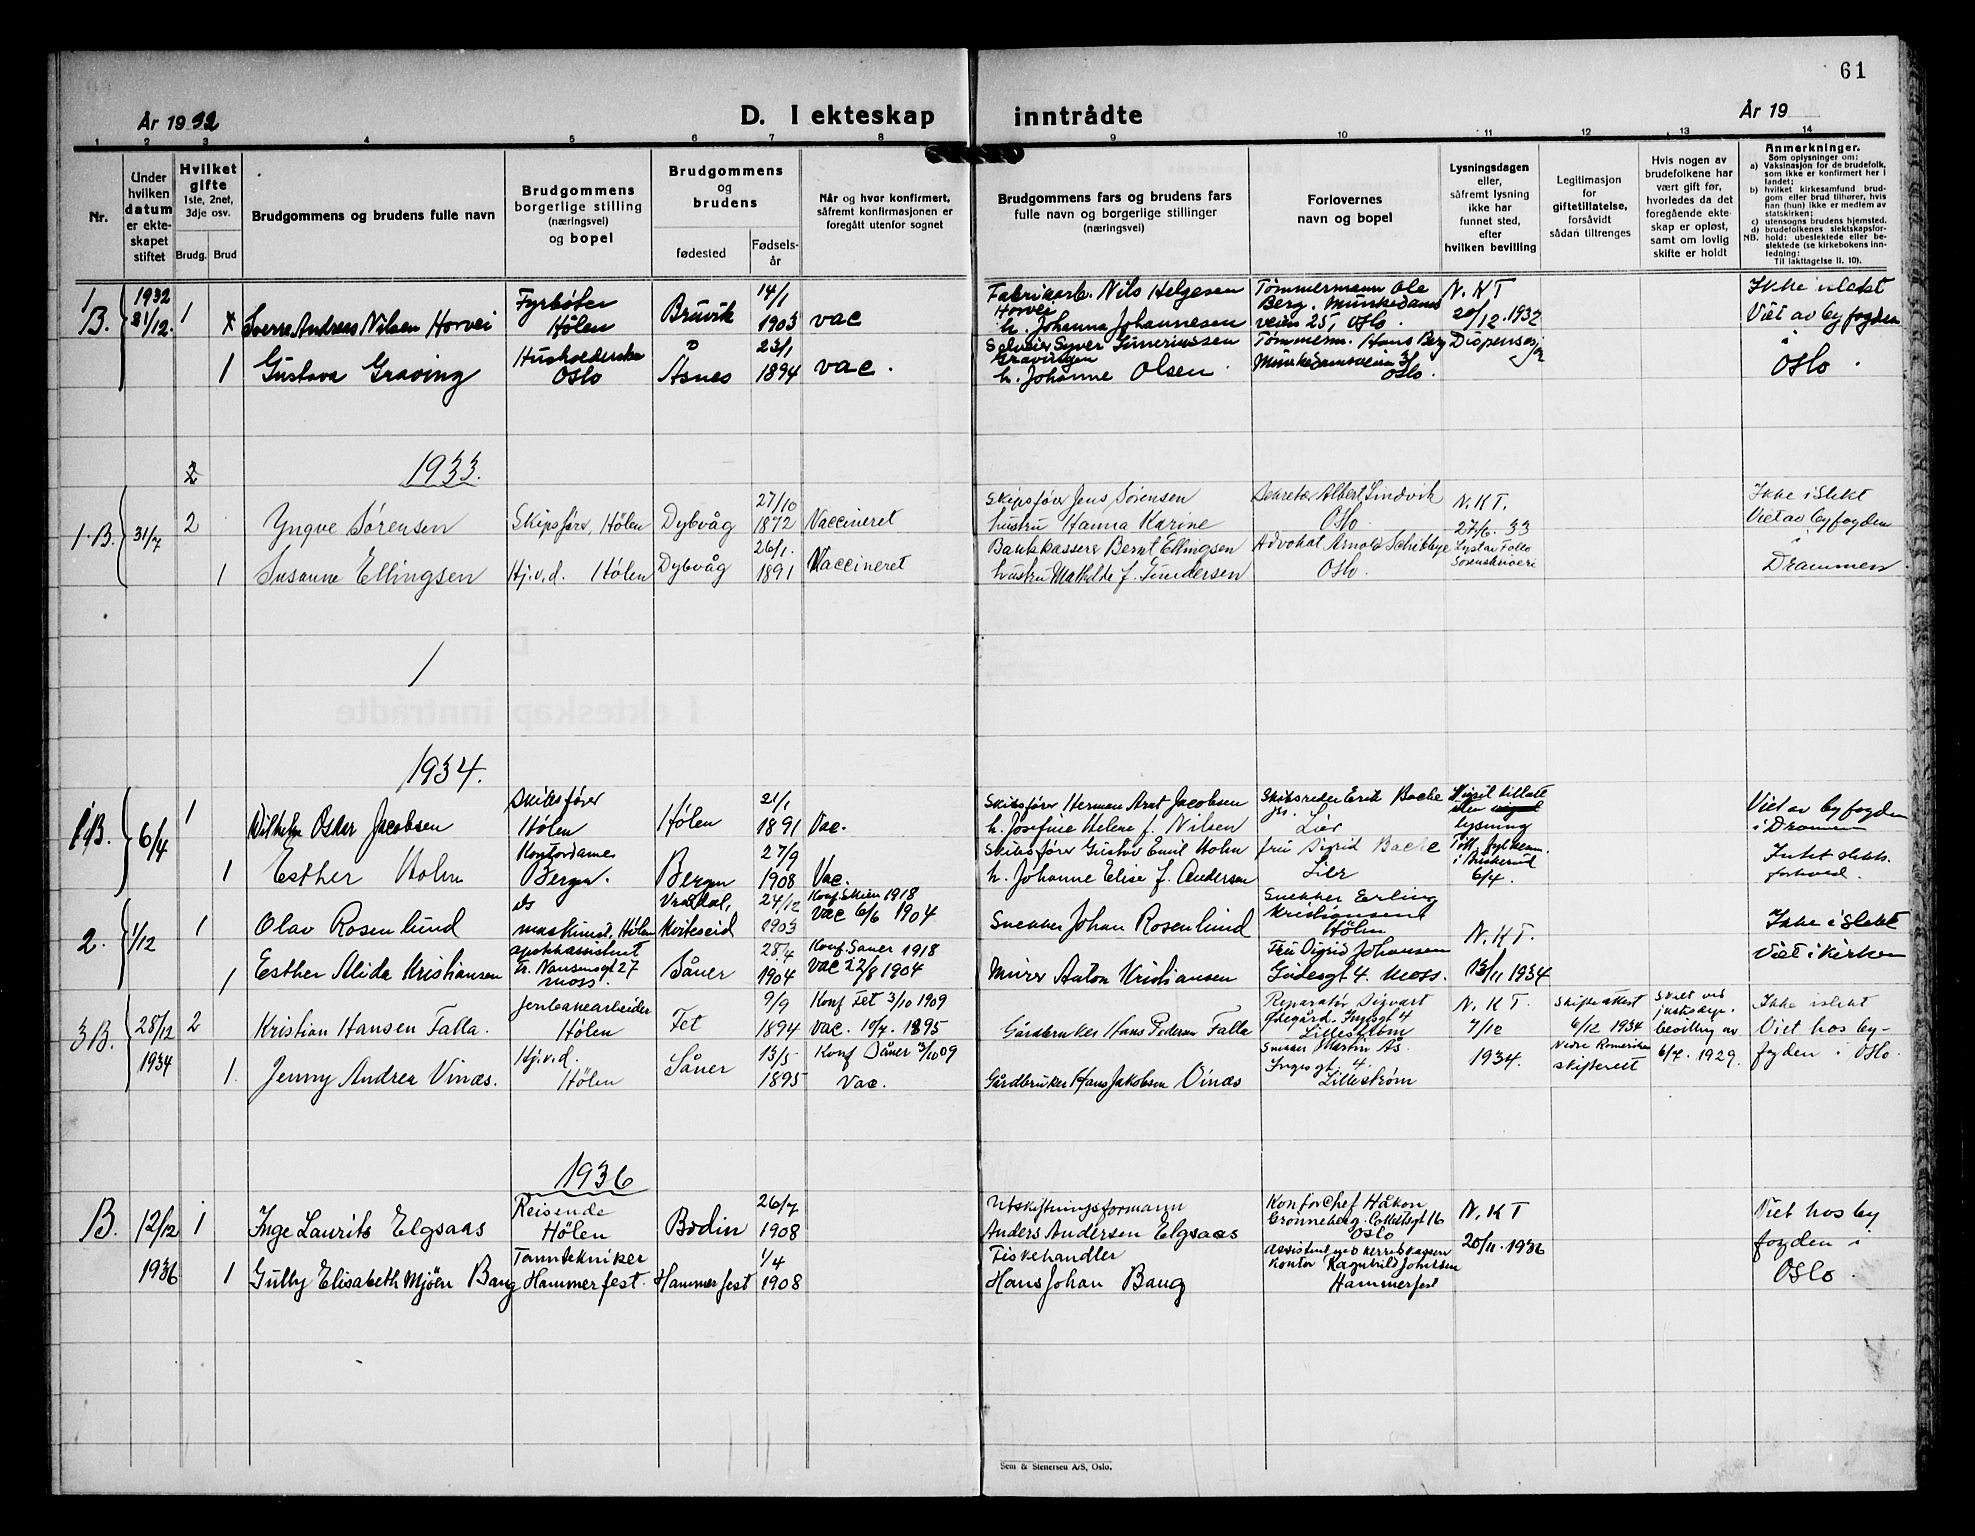 61
År 1932
D. I ekteskap inntrådte
År 19
1 2 3 4 5 6 7 8 9 10 11 12 13 14
Nr.
Under hvilken datum er ekteskapet stiftet
Hvilket gifte 1ste, 2net, 3dje osv.
Brudg. Brud
Brudgommens og brudens fulle navn
Brudgommens borgerlige stilling (næringsvei) og bopel
Brudgommens og brudens
fødested
Fødselsår
Når og hvor konfirmert, såfremt konfirmasjonen er foregått utenfor sognet
Brudgommens fars og brudens fars fulle navn og borgerlige stillinger (næringsvei)
Forlovernes navn og bopel
Lysningsdagen eller, såfremt lysning ikke har funnet sted, efter hvilken bevilling
Legitimasjon for giftetillatelse, forsåvidt sådan tiltrenges
Hvis nogen av brudefolkene har vært gift før, hvorledes da det foregående ekteskap er opløst, samt om lovlig skifte er holdt
Anmerkninger.
Som oplysninger om:
a) Vaksinasjon for de brudefolk, som ikke er konfirmert her i landet;
b) hvilket kirkesamfund brudgom eller brud tilhører, hvis han (hun) ikke er medlem av statskirken;
c) utensogns brudens hjemsted.
d) brudefolkenes slektskapsforhold: ubeslektede eller beslektede (se kirkebokens innledning:
NB.
Til iakttagelse II. 10).
1 B. 1932 31/12. 1 Sverre Andreas Nilsen Horvei Fyrbøter Hølen Bruvik 14/1 1903 vac Fabrikarb. Nils Helgesen Horvei h. Johanna Johannesen Tømmermann Ole Berg. Munkedamsveien 25, Oslo. N.K.T 20/12.1932 Ikke i slekt Viet av byfogden i Oslo.
1 Gustava Graving Husholderske Oslo Åsnes 23/1 1894 vac. Syver h. Johanne Olsen. Tømmerm. Hans Berg Munkedamsveien Oslo.
2 1933.
1.B. 31/7 2 Yngve Sørensen Skipsfører, Hølen Dybvåg 27/10 1872 Vaccineret Skipsfører Jens Sørensen hustru Hanna Karine Sekretær Albert Lindvik Oslo N.K.T. 27/6.33 Ikke i slekt Viet av byfogden i Drammen
1 Susanne Ellingsen Hj.v.d. Hølen Dybvåg 26/1. 1891 Vaccineret Bankkasserer Bernt Ellingsen hustru Mathilde f. Gundersen Advokat Arnold Schibbye Oslo.
1
1934.
1B. 6/4 1 Wilhelm Oskar Jacobsen Skibsfører Hølen Hølen 21/1 1891 Vac. Skibsfører Herman Arnt Jacobsen h. Josefine Helene f. Nilsen Skibsreder Erik Bache jr. Lier lysning 6/4. Viet av byfogden i Drammen Intet slektsforhold.
1 Esther Holm Kontordame Bergen. Bergen 27/9 1908 Vac. Skibsfører Gustav Emil Holm h. Johanne Elise f. Andersen fru Sigrid Bache Lier
2. 1/12 1 Olav Rosenlund maskinist, Hølen Vrådal, Kviteseid 24/12 1903 Konf. Skien 1918 vac 6/6 1904 Snekker Johan Rosenlund Snekker Erling Kristiansen Hølen N.K.T. 13/11 1934 Ikke i slekt Viet i kirken
1 Esther Alida Kristiansen apotekassistent Fr. Nansensgt 27 Moss. Såner 28/4 1904 Konf. Såner 1918 vac 22/8 1904 Murer Anton Kristiansen Fru Sigrid Johansen Gudesgt 4. Moss.
3B. 28/12 1934 2 Kristian Hansen Falla. Jernbanearbeider Hølen Fet 9/9 1894 Konf Fet 3/10 1909 vac. 10/7. 1895 Gårdbruker Hans Pedersen Falla Reparatør Sigvart Ødegård. Ingesgt 4 Lillestrøm N.K.T. 7/12 1934. Skifteattest 6/12 1934 Nedre Romerikes skifterett Skilt ved justisdep. bevilling av 6/7. 1929. Ikke i slekt Viet hos byfogden i Oslo.
1. Jenny Andrea Vinæs. Hj.v.d. Hølen Såner 13/5 1895 Konf Såner 3/10 09 Vac. Gårdbruker Hans Jakobsen Vinæs Snekker Martin Ås. Ingesgt. 4. Lillestrøm
1936
B. 12/12 1936 1 Inge Laurits Elgsaas Reisende Hølen Bodin 26/7 1908 Utskiftningsformann Anders Andersen Elgsaas Kontorchef Håkon Grønneberg. Collettsgt 16 Oslo N.K.T 20/11.1936 Viet hos byfogden i Oslo.
1 Gulby Elisabeth Mjøen Baug Tanntekniker Hammerfest. Hammerfest 1/4 1908 Fiskehandler Hans Johan Baug Assistent ved kontor Ragnhild Johnsen Hammerfest
Sem & Stenersen A/S, Oslo.